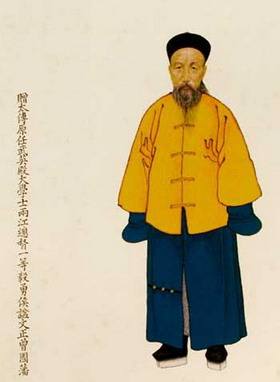 贈太傅原任武英殿大學士兩江總督一等毅勇侯諡文正曾國藩